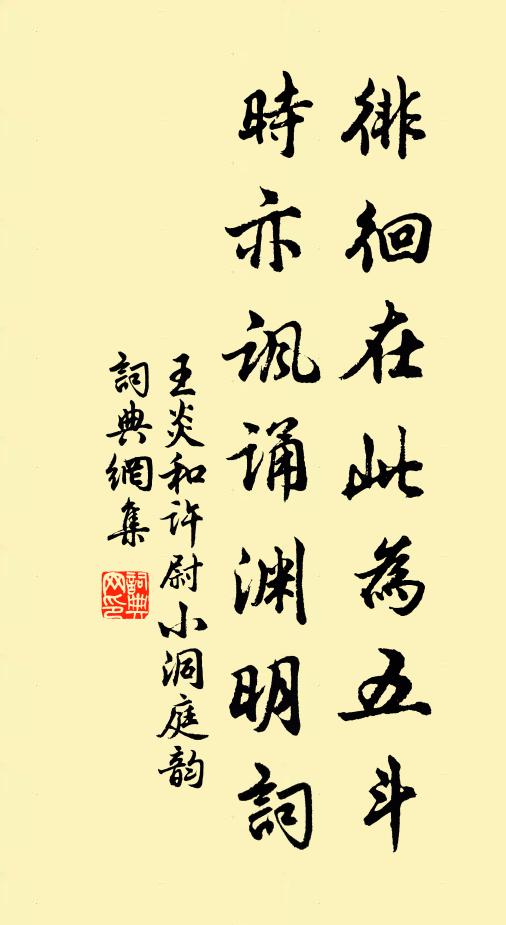 徘徊在此為五斗
時亦諷誦渊明詞
王炎和許尉小洞庭韵
詞典網集
詞典网印